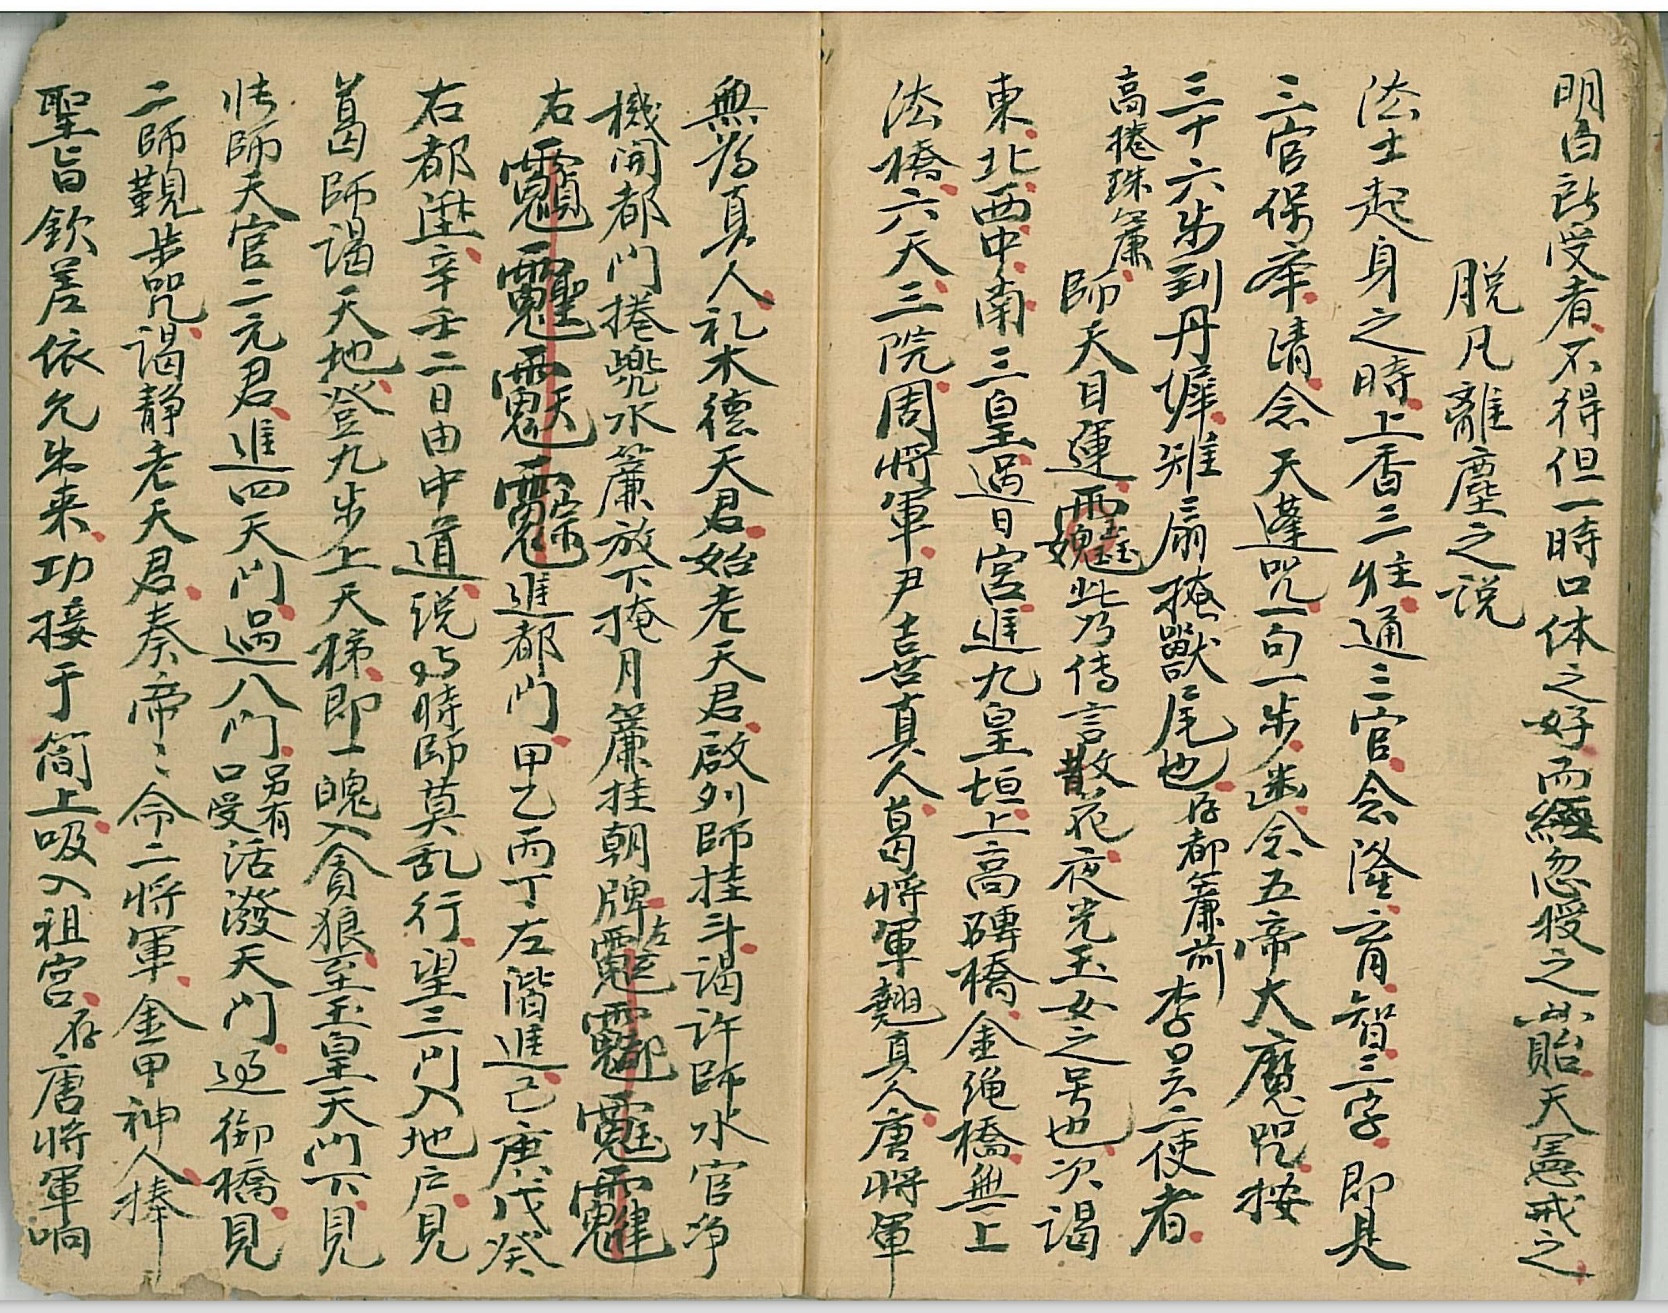 明白 受者不得但一時口体之好而經忽授之 貽天憲戒之
脱凡離塵之説
法士起身之時上香三炷通三官念隆育智三字即是
三官保奉請念天蓬咒一句一步遂念五帝大魔咒按
三十六步到丹墀雉扇掩獸尾也存都簾前李呂二使者
高捲珠簾師天目運 此乃傳言散花夜光玉女之号也次謁
東北西中南三皇過日宮進九皇垣上高磚橋金繩橋無上
法橋六天三院周將軍尹喜真人葛將軍 真人唐將軍
無為真人礼木德天君始老天君啟列師挂斗謁許師水官净
機開都門捲 水簾放下掩月簾挂朝牌左
右 進都門甲乙丙丁左階進己庚戊癸
右都進辛壬二日由中道説 時師莫乱行望三門入地户見
葛師謁天地登九步上天梯即一魄入貪狼至玉皇天門下見
張師天官二元君進四天門過八門另有口受活潑天門過御橋見
二師觀步咒謁靜老天君奏帝〻命二將軍金甲神人捧
聖旨欽差依允出来功接于简上吸入祖宮存唐將軍响